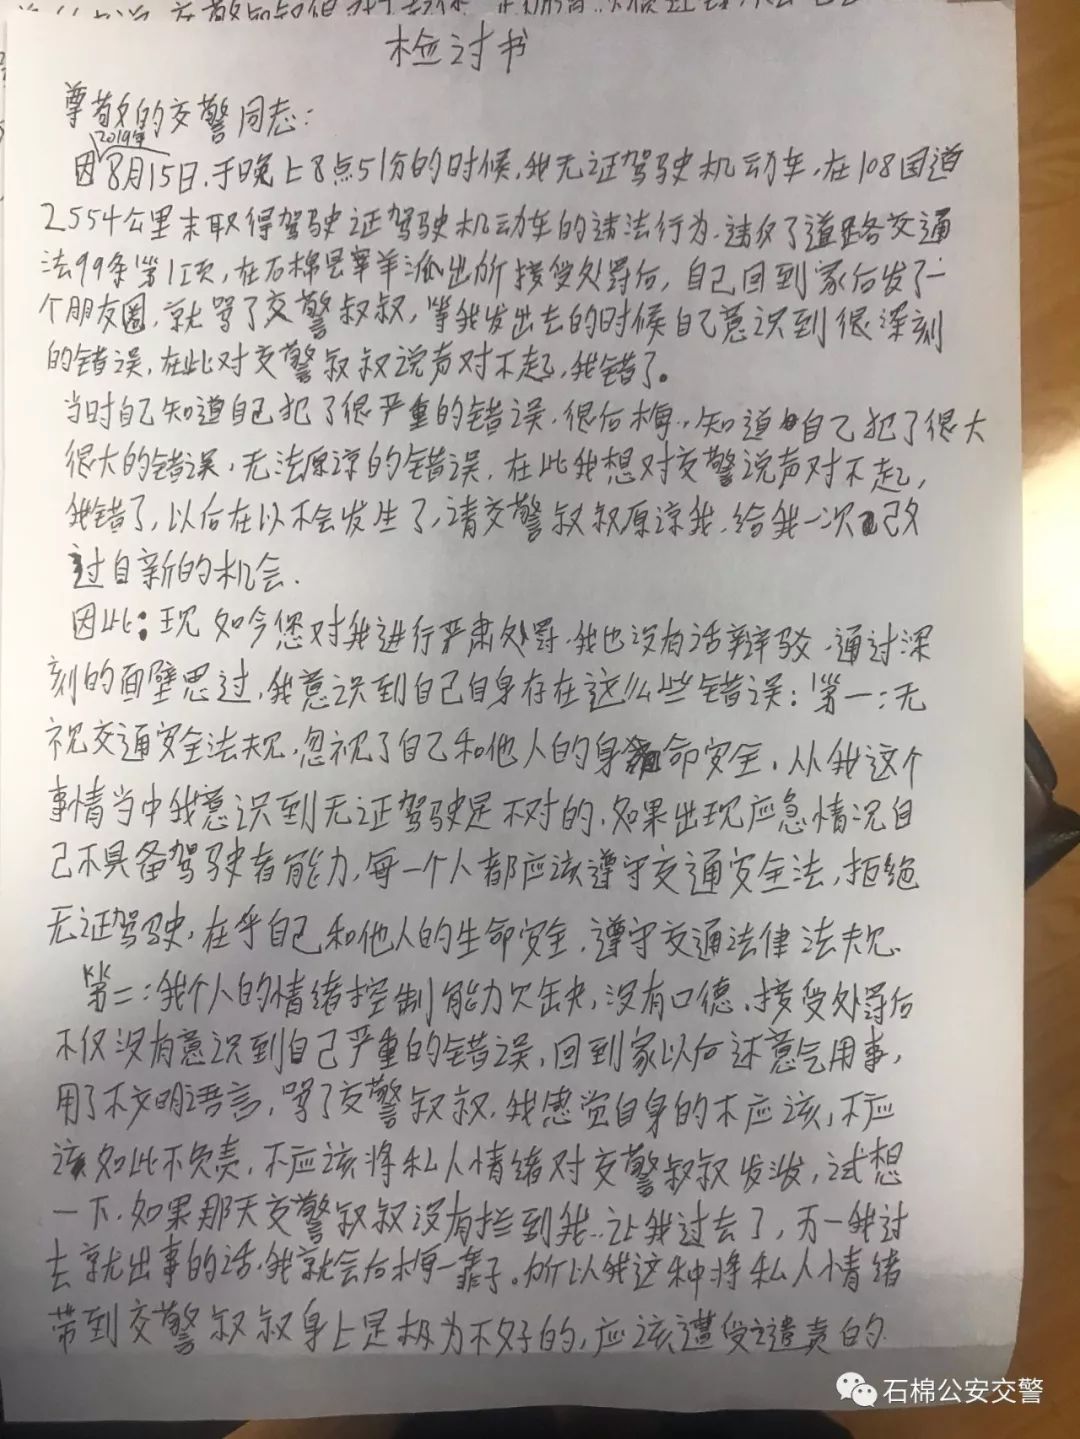 检讨书
尊敬的交警同志:
2019年
因8月15日,于晚上8点51分的时候,我无证驾驶机动车,在108国道
2554公里未取得驾驶证驾驶机动车的违法行为.违反了道路交通
法99条第1项,在石棉县宰羊派出所接受处罚后,自己回到家后发了一
个朋友圈,就骂了交警叔叔,等我发出去的时候自己意识到很深刻
的错误,在此对交警叔叔说声对不起,我错了。
当时自己知道自己犯了很严重的错误.很后悔..知道自己犯了很大
很大的错误,无法原谅的错误,在此我想对交警说声对不起,
我错了,以后在以不会发生了,请交警叔叔原谅我,给我一次改
过自新的机会.
因此:现如今您对我进行严肃处罚.我也没有话辩驳.通过深
刻的面壁思过,我意识到自己自身存在这么些错误:第一:无
视交通安全法规,忽视了自己和他人的身命安全,从我这个
事情当中我意识到无证驾驶是不对的,如果出现应急情况自
己不具备驾驶者能力,每一个人都应该遵守交通安全法,拒绝
无证驾驶,在乎自己和他人的生命安全.遵守交通法律法规.
第二:我个人的情绪控制能力欠缺,没有口德.接受处罚后
不仅没有意识到自己严重的错误,回到家以后还意气用事,
用了不文明语言,骂了交警叔叔.我感觉自身的不应该,不应
该如此不负责,不应该将私人情绪对交警叔叔发泼,试想
一下.如果那天交警叔叔没有拦到我..让我过去了,万一我过
去就出事的话,我就会后悔一辈子。所以我这种将私人情绪
带到交警叔叔身上是极为不好的,应该遭受谴责的
石棉公安交警